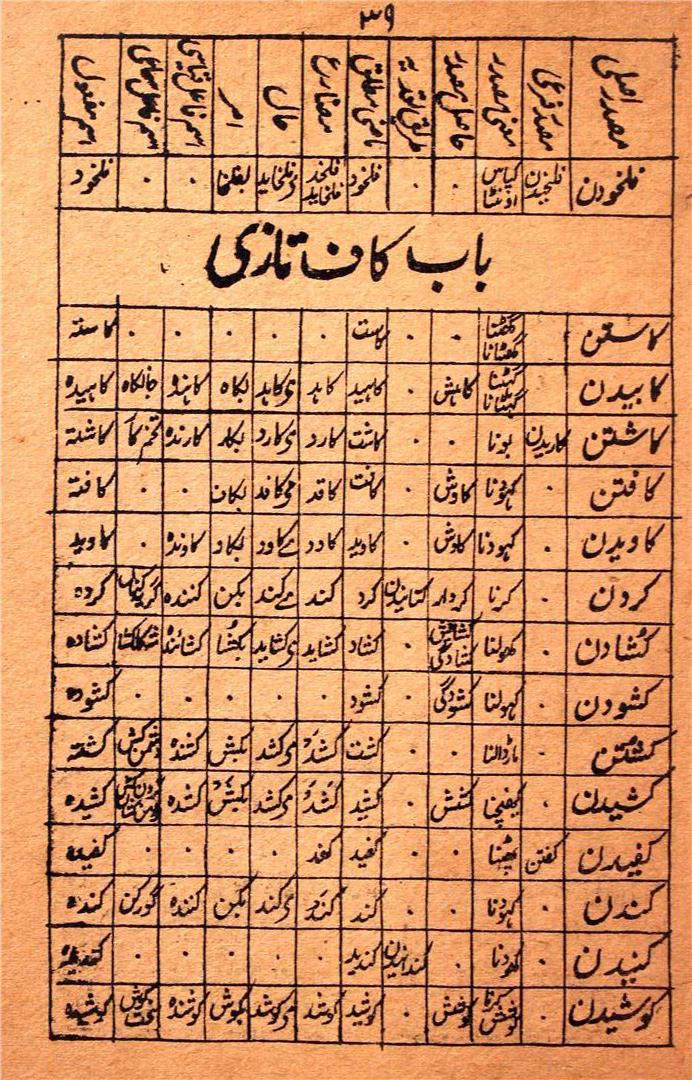 ۳۹
مصدر اصلی مصدر فرعی معنی مصدر حاصل مصدر طریق تعدیہ ماضی مطلق مضارع حال امر اسم فاعل قیاسی اسم فاعل سماعی اسم مفعول
فلخودن فلخیدن کپاس اونٹنا . . فلخود فلخد فلخاید می فلخاید بفلخا . . فلخود
باب کاف تازی
کاستن گھٹنا گھٹانا . . کاست . . . . . کاستہ
کاہیدن گھٹنا گھٹانا کاہش . کاہید کاہد می کاہد بکاہ کاہندہ جانکاہ کاہیدہ
کاشتن کاریدن بونا . . کاشت کارد می کارد بکار کارندہ تخم کار کاشتہ
کافتن . کہودنا کاوش . کافت کافد می کافد بکاف . . کافتہ
کاویدن . کہودنا کاوش . کاوید کاود مے کاود بکاو کاوندہ . کاوید
کردن . کرنا کردار کنانیدن کرد کند مے کند بکن کنندہ کردہ
کشادن . کھولنا کشایش کشادگی . کشاد کشاید می کشاید بکشا کشائندہ مشکلکشا کشادہ
کشودن . کہولنا کشودگی . کشود . . . . . کشودہ
کشتن . مارڈالنا . . کشت کشد می کشد بکش کشندہ دشمن کش کشتہ
کشیدن . کھینچنا کشش . کشید کشد می کشد بکش کشندہ کشیدہ
کفیدن کفتن پھٹنا . . کفید کفد . . . . کفیدہ
کندن . کہودنا . . کند کند می کند بکن کنندہ گورکن کندہ
کنیدن . کھودنا . کندانیدن کندید . . . . .
کوشیدن . کوشش کرنا کوشش . کوشید کوشد می کوشد بکوش کوشندہ سخت کوش کوشیدہ